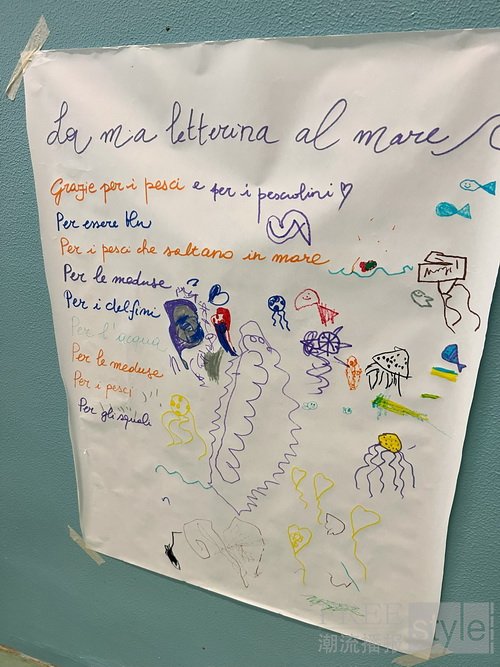 La mia letterina al mare
Grazie per i pesci e per i pesciolini
Per essere blu
Per i pesci che saltano in mare
Per le meduse
Per i delfini
Per l'acqua
Per le meduse
Per i pesci
Per gli squali
FREE style
潮流播报